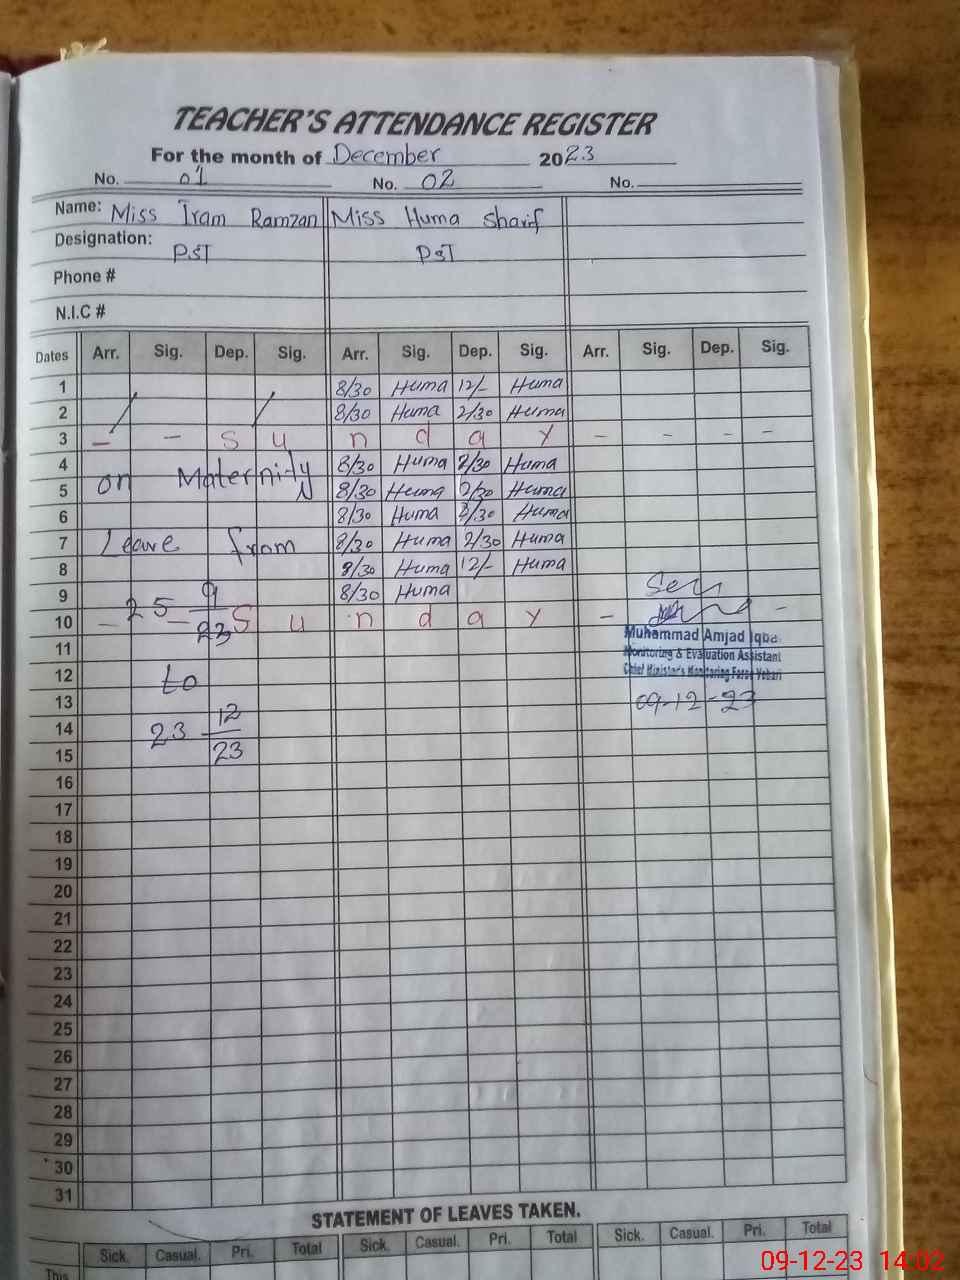 TEACHER'S ATTENDANCE REGISTER
For the month of December 2023
No. 01 No. 02 No.
Name: Miss Iram Ramzan Miss Huma Sharif
Designation: PST PST
Phone #
N.I.C #
Dates Arr. Sig. Dep. Sig. Arr. Sig. Dep. Sig. Arr. Sig. Dep. Sig.
1 8/30 Huma 12/- Huma
2 / / 8/30 Huma 2/30 Huma
3 - - S u n d a y - - - -
4 on Maternity 8/30 Huma 2/30 Huma
5 8/30 Huma 2/30 Huma
6 8/30 Huma 2/30 Huma
7 Leave from 8/30 Huma 2/30 Huma
8 8/30 Huma 12/- Huma
9 25 9/23 8/30 Huma Seen
10 - - S u n d a y - -
11 Muhammad Amjad Iqbal
Monitoring & Evaluation Assistant
12 to Chief Minister's Monitoring Force Vehari
13 09-12-23
14 23 12/23
15
16
17
18
19
20
21
22
23
24
25
26
27
28
29
30
31
STATEMENT OF LEAVES TAKEN.
Sick. Casual. Pri. Total Sick. Casual. Pri. Total Sick. Casual. Pri. Total
This
09-12-23 14:02